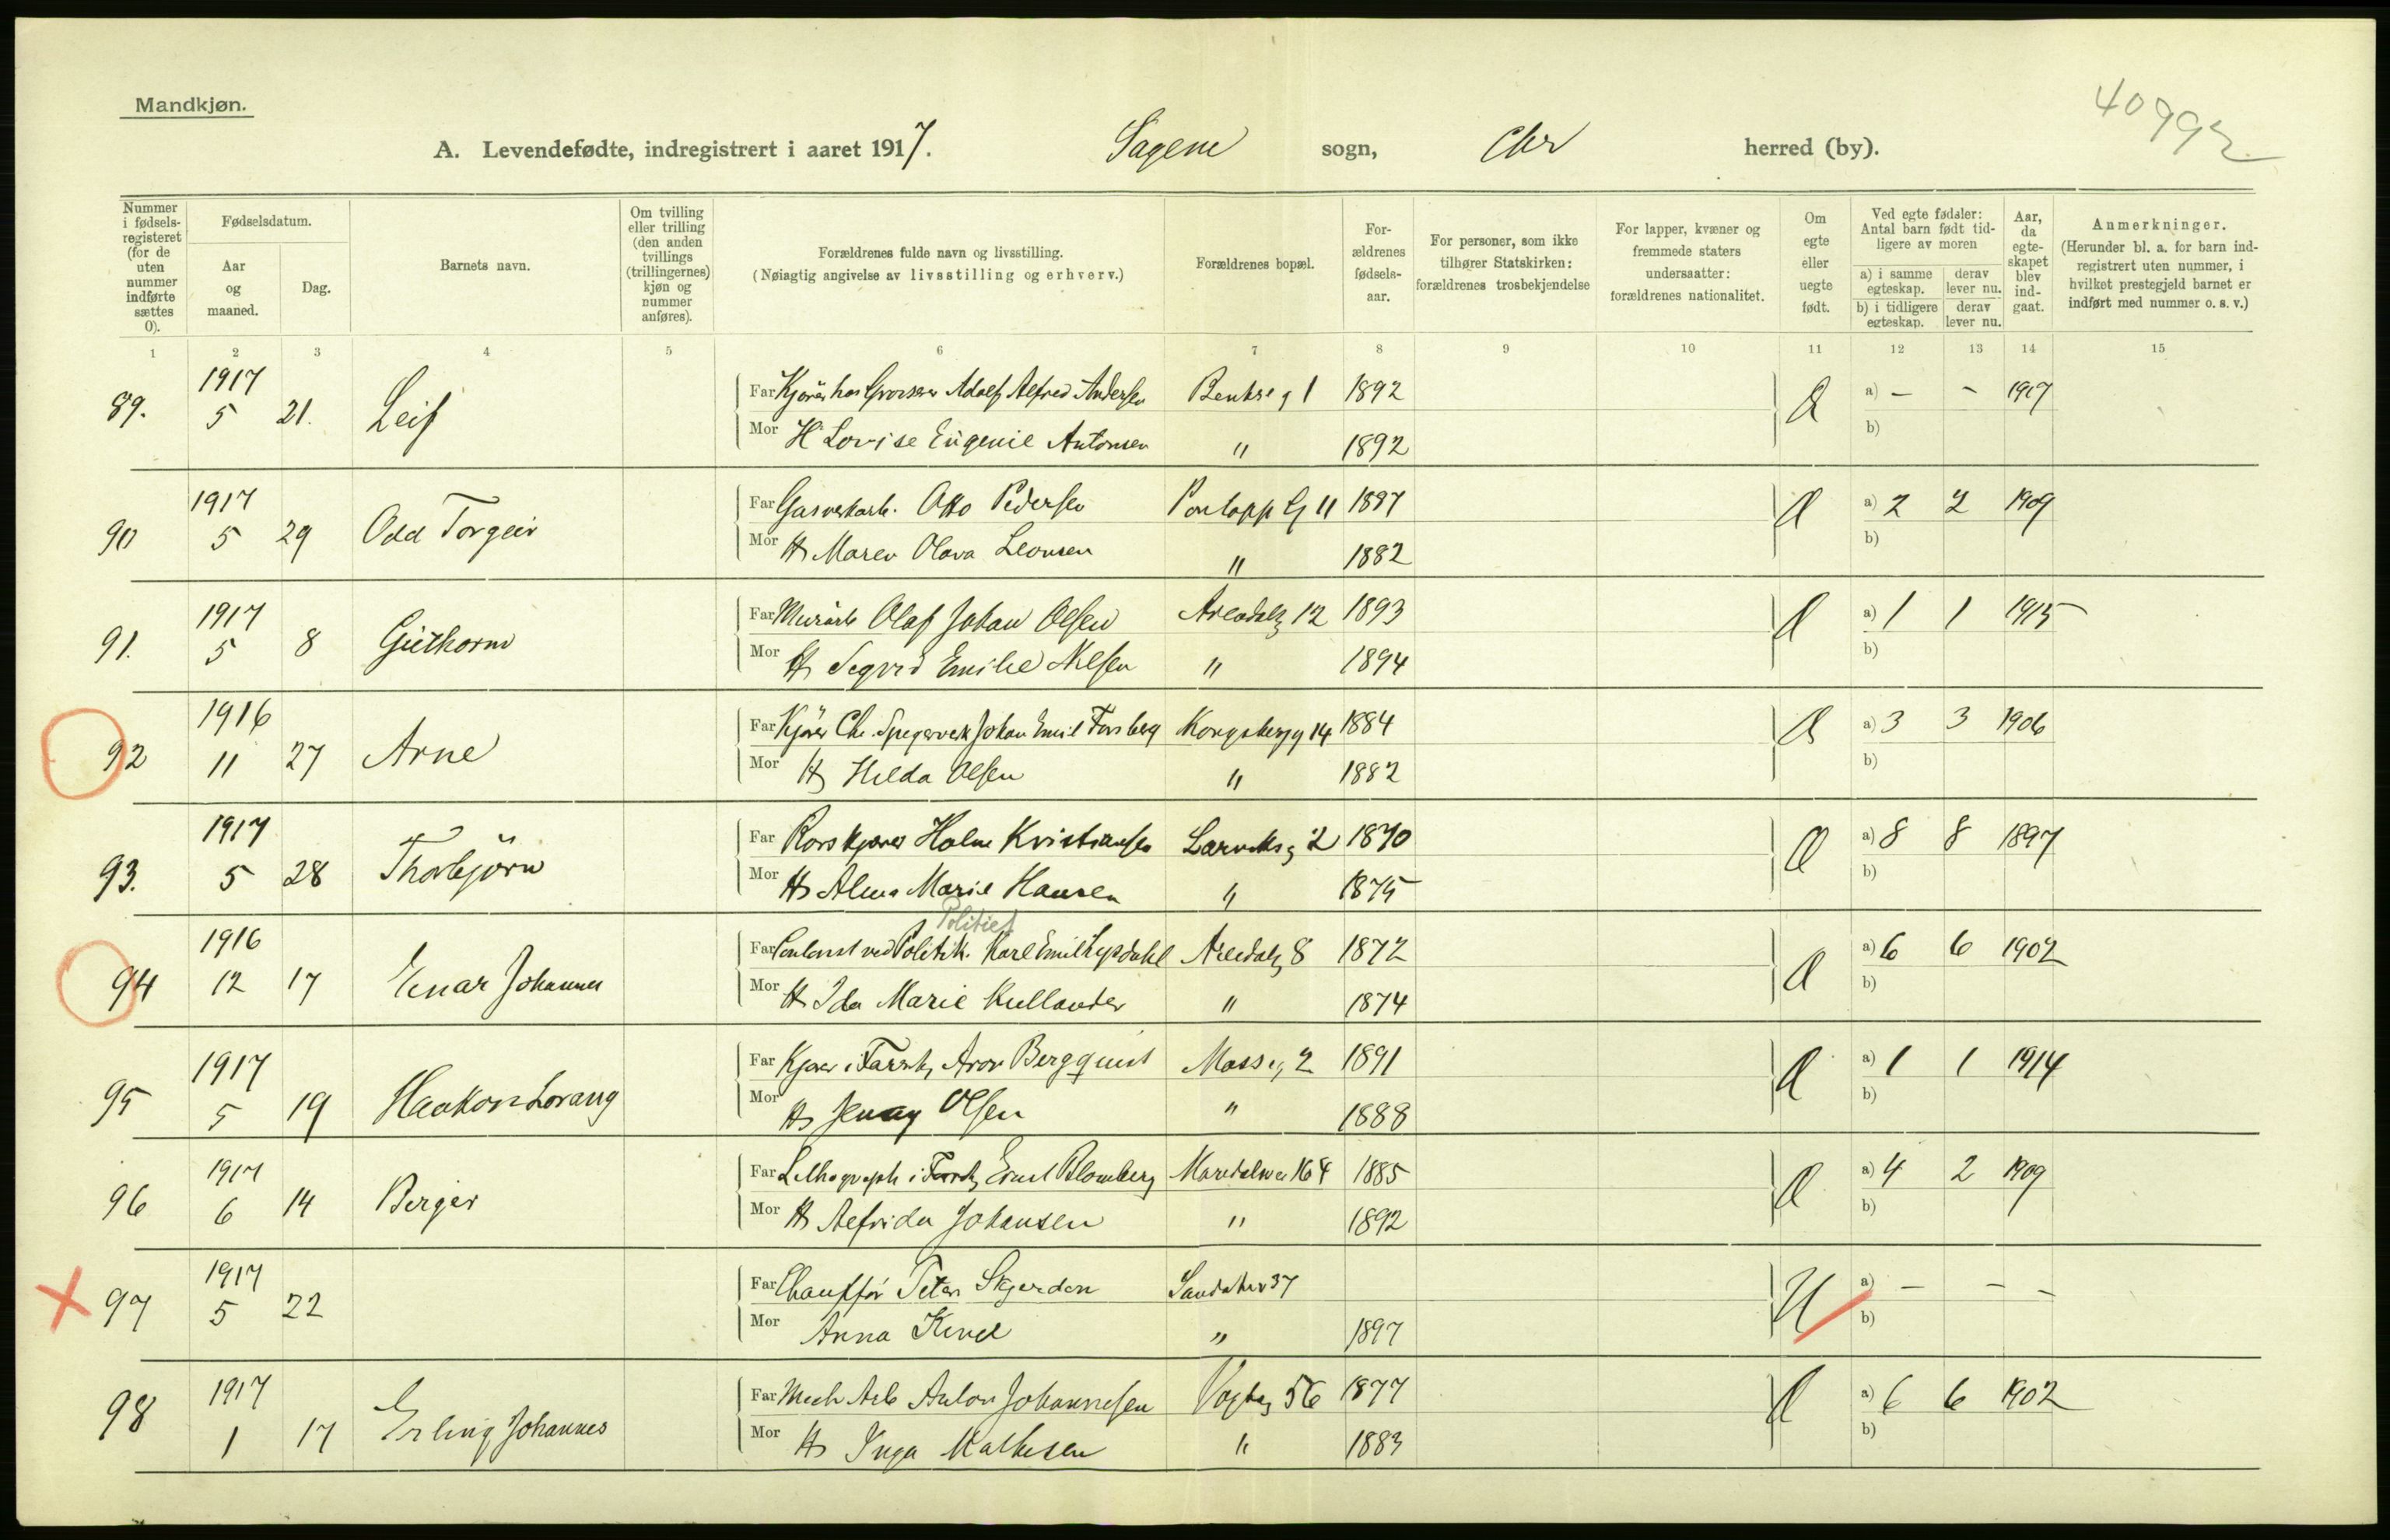 Mandkjøn.
40992
A. Levendefødte, indregistrert i aaret 1917. Sagene sogn, Chr herred (by).
Nummer i fødsels-registeret (for de uten nummer indførte sættes 0).
Fødselsdatum.
Aar og maaned.
Dag.
Barnets navn.
Om tvilling eller trilling (den anden tvillings (trillingernes) kjøn og nummer anføres).
Forældrenes fulde navn og livsstilling.
(Nøiagtig angivelse av livsstilling og erhverv.)
Forældrenes bopæl.
For-ældrenes fødsels-aar.
For personer, som ikke tilhører Statskirken: forældrenes trosbekjendelse
For lapper, kvæner og fremmede staters undersaatter: forældrenes nationalitet.
Om egte eller uegte født.
Ved egte fødsler: Antal barn født tid-ligere av moren
a) i samme egteskap. derav lever nu.
b) i tidligere egteskap. derav lever nu.
Aar, da egte-skapet blev ind-gaat.
Anmerkninger.
(Herunder bl. a. for barn ind-registrert uten nummer, i hvilket prestegjeld barnet er indført med nummer o. s. v.)
1 2 3 4 5 6 7 8 9 10 11 12 13 14 15
89. 1917 5 21. Leif Far Kjører hos Grosserer Adolf Alfred Andersen 1 1892 a) – – 1917
Mor H Lovise Eugenie Antonsen " 1892 b)
90 1917 5 29 Odd Torgeir Far Gasverkarb. Otto Pedersen Pontopp G 11 1887 a) 2 2 1909
Mor H Maren Olava Leonsen " 1882 b)
91. 1917 5 8 Guthorm Far Murarb Olaf Johan Olsen Arendalsg 12 1893 a) 1 1 1915
Mor H Segrid Emilie Nilsen " 1894 b)
92 1916 11 27 Arne Far Kjører Chr. Spigerverk Johan Emil Forsberg Kongsbergg 14 1884 a) 3 3 1906
Mor H Hilda Olsen " 1882 b)
93. 1917 5 28 Thorbjörn Far Kristiansen Larviksg 2 1870 a) 8 8 1897
Mor H Alma Marie Hansen " 1875 b)
Politiet
94 1916 12 17 Einar Johannes Far ved Politik. Karl Emil Arendalsg 8 1872 a) 6 6 1902
Mor H Ida Marie Kullander " 1874 b)
95 1917 5 19 Haakon Lorang Far Kjører i Aron Bergquist Mosseg 2 1891 a) 1 1 1914
Mor H Jenny Olsen " 1888 b)
96 1917 6 14 Berger Far Lithograph i Ernst Blomberg Maridalsvei 164 1885 a) 4 2 1909
Mor H Alfrida Johansen " 1892 b)
97 1917 5 22 Far Chauffør Peter Skjerden Sandakerv 37 U a) – – –
Mor Anna " 1897 b)
98 1917 1 17 Erling Johannes Far Mek Arb Anton Johannesen Vogtsg 56 1877 a) 6 6 1902
Mor H Inga Mathisen " 1883 b)